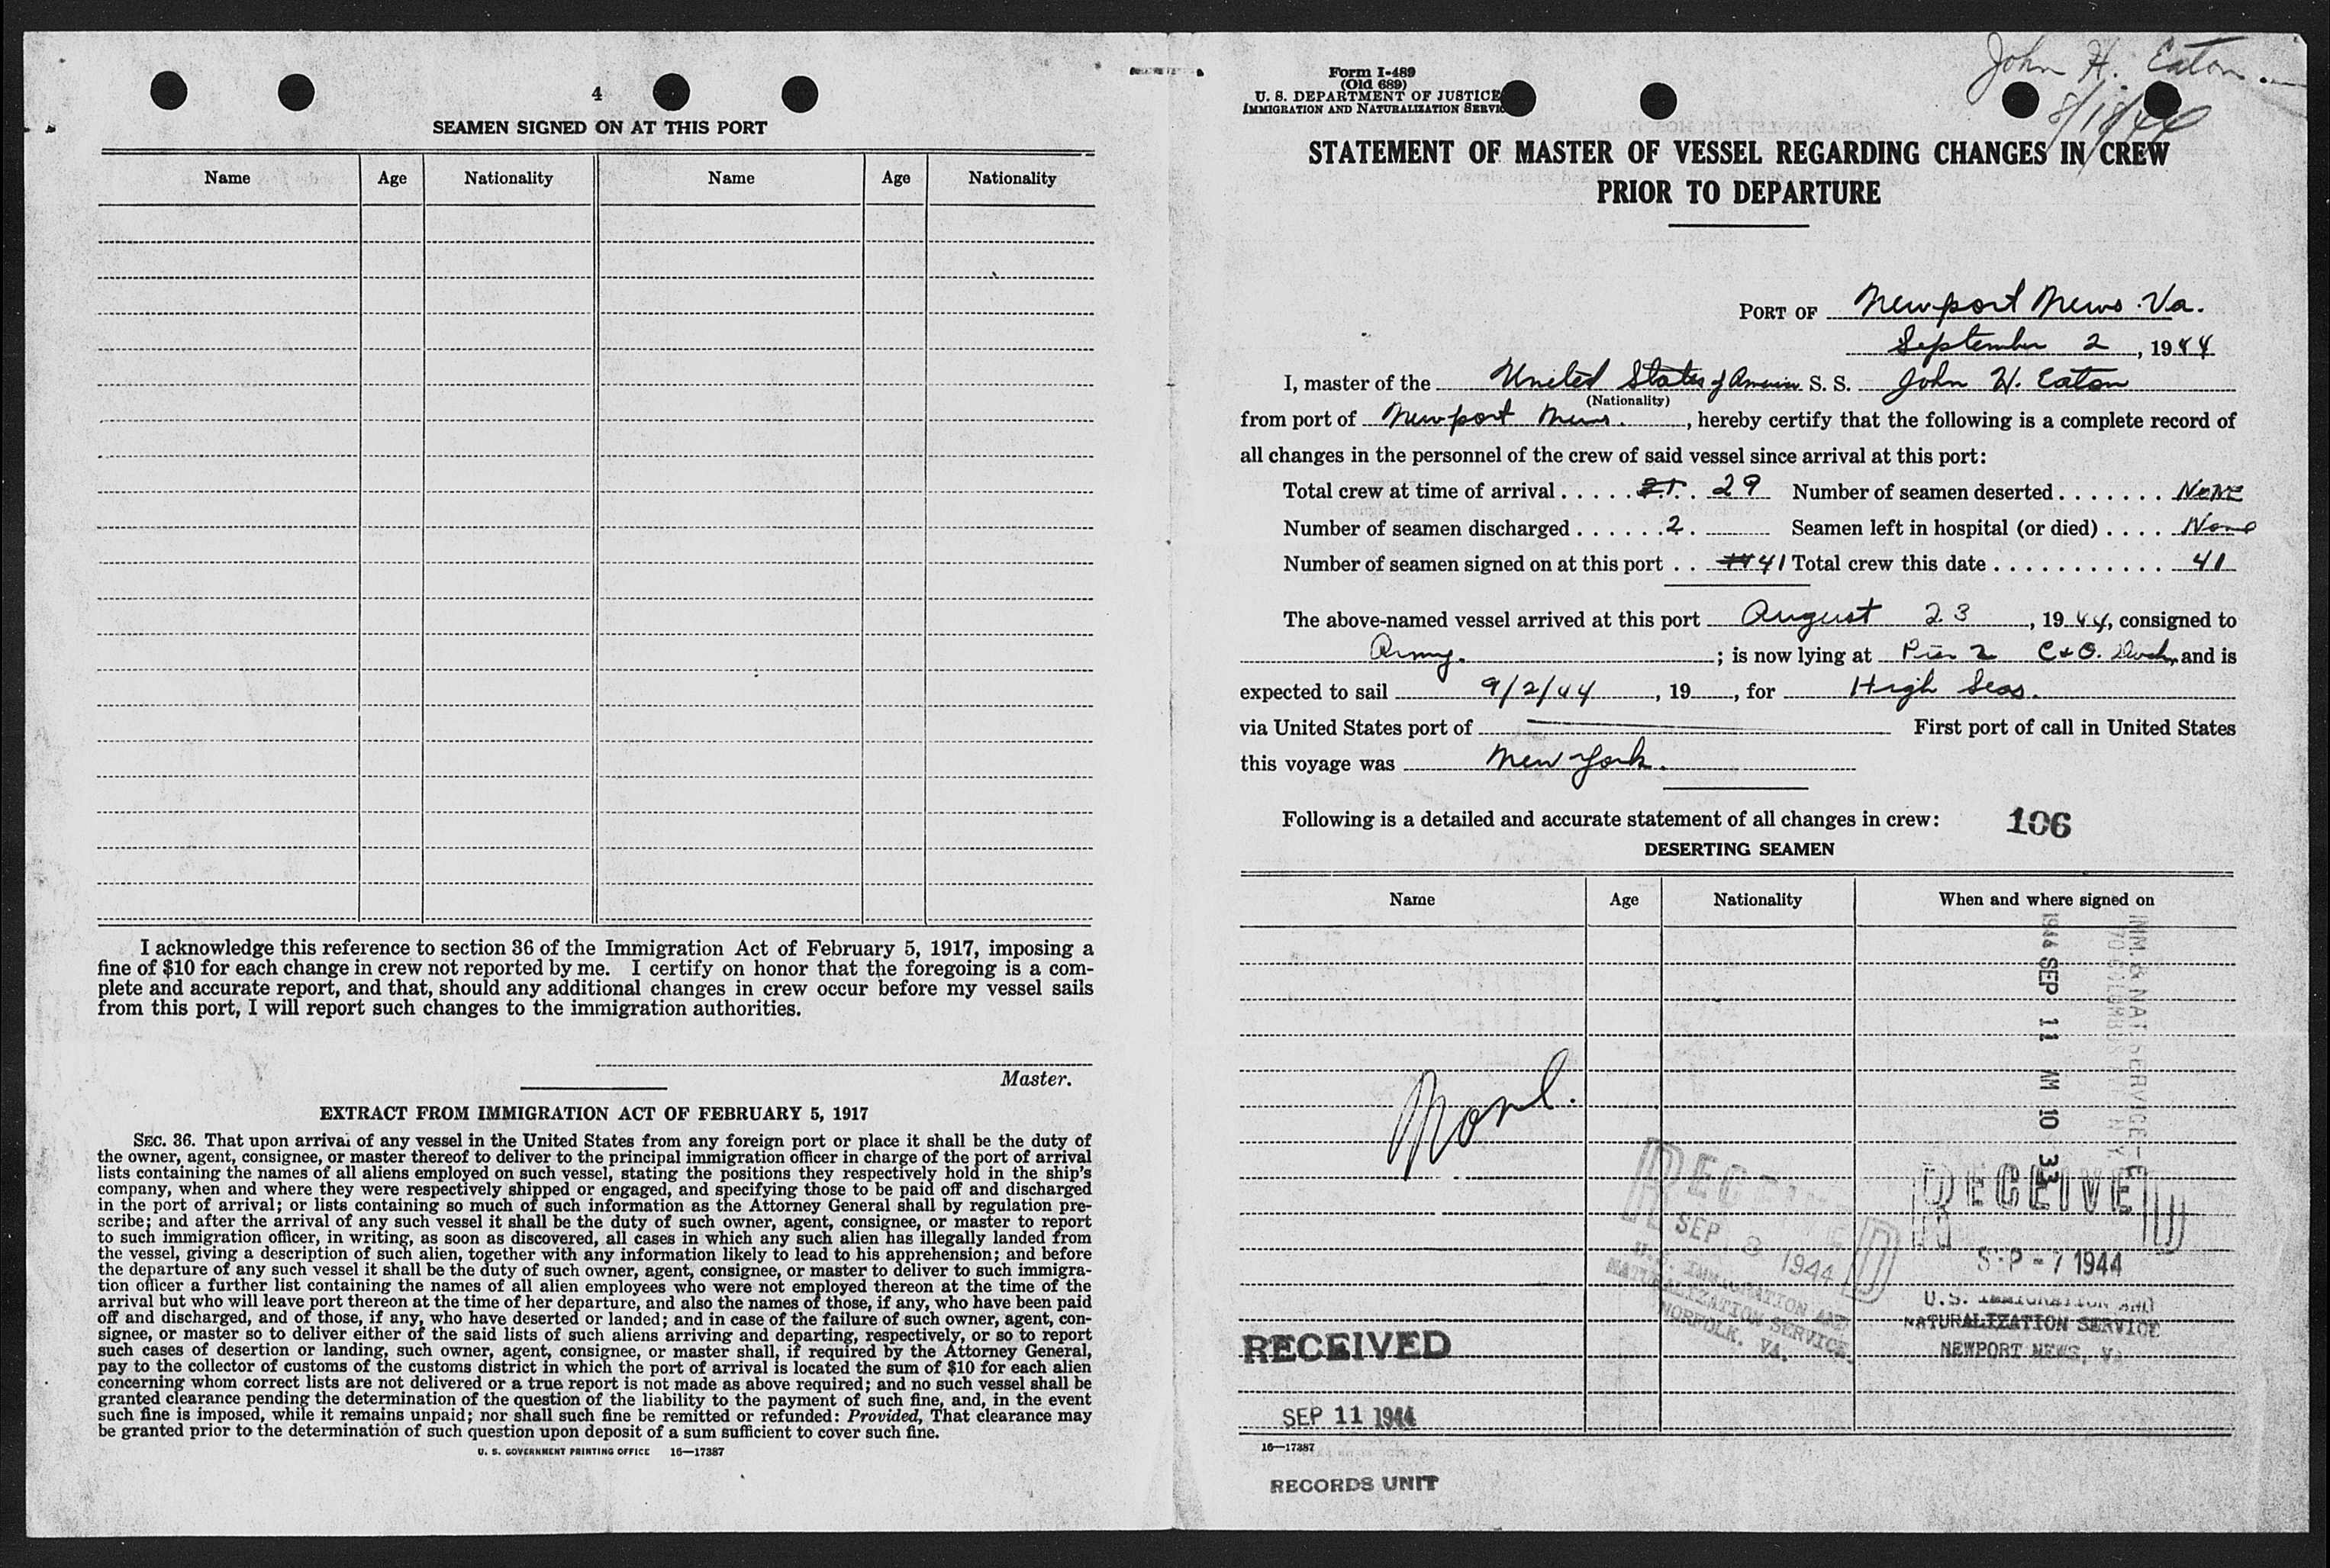 4
SEAMEN SIGNED ON AT THIS PORT
Name Age Nationality Name Age Nationality
I acknowledge this reference to section 36 of the Immigration Act of February 5, 1917, imposing a
fine of $10 for each change in crew not reported by me. I certify on honor that the foregoing is a com-
plete and accurate report, and that, should any additional changes in crew occur before my vessel sails
from this port, I will report such changes to the immigration authorities.
Master.
EXTRACT FROM IMMIGRATION ACT OF FEBRUARY 5, 1917
SEC. 36. That upon arrival of any vessel in the United States from any foreign port or place it shall be the duty of
the owner, agent, consignee, or master thereof to deliver to the principal immigration officer in charge of the port of arrival
lists containing the names of all aliens employed on such vessel, stating the positions they respectively hold in the ship's
company, when and where they were respectively shipped or engaged, and specifying those to be paid off and discharged
in the port of arrival; or lists containing so much of such information as the Attorney General shall by regulation pre-
scribe; and after the arrival of any such vessel it shall be the duty of such owner, agent, consignee, or master to report
to such immigration officer, in writing, as soon as discovered, all cases in which any such alien has illegally landed from
the vessel, giving a description of such alien, together with any information likely to lead to his apprehension; and before
the departure of any such vessel it shall be the duty of such owner, agent, consignee, or master to deliver to such immigra-
tion officer a further list containing the names of all alien employees who were not employed thereon at the time of the
arrival but who will leave port thereon at the time of her departure, and also the names of those, if any, who have been paid
off and discharged, and of those, if any, who have deserted or landed; and in case of the failure of such owner, agent, con-
signee, or master so to deliver either of the said lists of such aliens arriving and departing, respectively, or so to report
such cases of desertion or landing, such owner, agent, consignee, or master shall, if required by the Attorney General,
pay to the collector of customs of the customs district in which the port of arrival is located the sum of $10 for each alien
concerning whom correct lists are not delivered or a true report is not made as above required; and no such vessel shall be
granted clearance pending the determination of the question of the liability to the payment of such fine, and, in the event
such fine is imposed, while it remains unpaid; nor shall such fine be remitted or refunded: Provided, That clearance may
be granted prior to the determination of such question upon deposit of a sum sufficient to cover such fine.
U. S. GOVERNMENT PRINTING OFFICE 16—17387
John H. Eaton.
8/18/44
Form I-489
(Old 689)
U. S. DEPARTMENT OF JUSTICE
IMMIGRATION AND NATURALIZATION SERVIC
STATEMENT OF MASTER OF VESSEL REGARDING CHANGES IN CREW
PRIOR TO DEPARTURE
PORT OF Newport News Va.
September 2, 1944
I, master of the United States of America S. S. John H. Eaton
(Nationality)
from port of Newport News., hereby certify that the following is a complete record of
all changes in the personnel of the crew of said vessel since arrival at this port:
Total crew at time of arrival ..... 29 Number of seamen deserted ....... None
Number of seamen discharged ...... 2. Seamen left in hospital (or died) .... None
Number of seamen signed on at this port .. 41 Total crew this date ........... 41
The above-named vessel arrived at this port August 23, 1944, consigned to
Army.; is now lying at Pier 2 C & O. Dock, and is
expected to sail 9/2/44, 19, for High Seas.
via United States port of First port of call in United States
this voyage was New York.
Following is a detailed and accurate statement of all changes in crew: 106
DESERTING SEAMEN
Name Age Nationality When and where signed on
None.
IMM. & NAT. SERVICE
1944 SEP 11 AM 10 33
RECEIVED
SEP 8 1944
U.S. IMMIGRATION AND
NATURALIZATION SERVICE.
NORFOLK, VA.
RECEIVED
SEP - 7 1944
U.S. IMMIGRATION AND
NATURALIZATION SERVICE
NEWPORT NEWS, V
RECEIVED
SEP 11 1944
16—17387
RECORDS UNIT